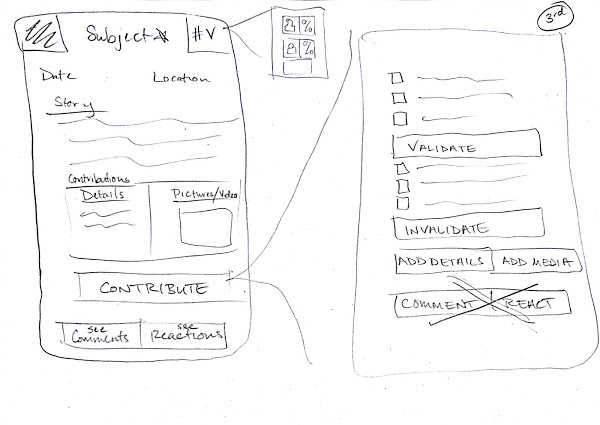 Subject
#V
%
%
3rd
Date Location
Story
Contributions
Details
Pictures/Video
CONTRIBUTE
see Comments
see Reactions
VALIDATE
INVALIDATE
ADD DETAILS
ADD MEDIA
COMMENT
REACT